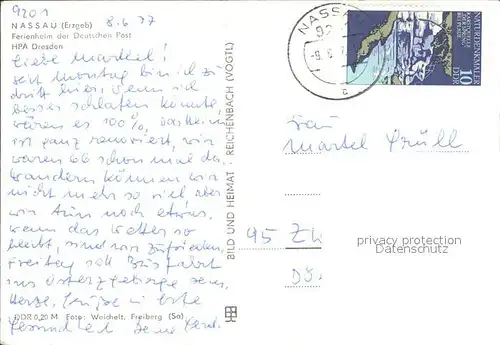 9201
NASSAU (Erzgeb) 8.6.77
Ferienheim der Deutschen Post
HPA Dresden
Liebe Martel!
Seit Montag bin ich zu
dritt hier, wenn ich
besser schlafen könnte,
wären es 100%, das Heim
ist ganz renoviert, wir
waren ab schon mal da.
Wandern können wir
nicht mehr so viel aber
wir tun noch etwas,
wenn das Wetter so
bleibt, sind wir zufrieden,
Freitag soll Busfahrt
ins Osterzgebirge sein,
Herzl. Grüße in
Gesundheit Deine
DDR 0,20 M Foto: Weichelt, Freiberg (Sa)
BILD UND HEIMAT REICHENBACH (VOGTL)
NASSAU
NATURDENKMÄLER
10
DDR
Frau
Martel
95
privacy protection
Datenschutz